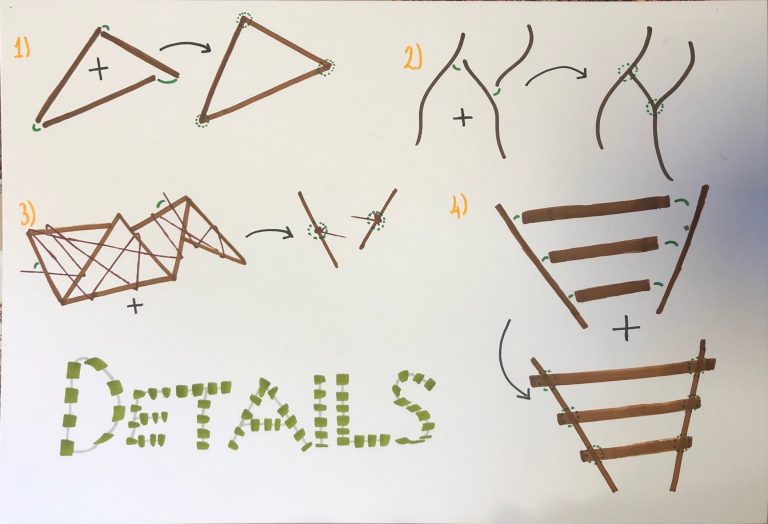 1)
+
2)
+
3)
+
4)
+
DETAILS